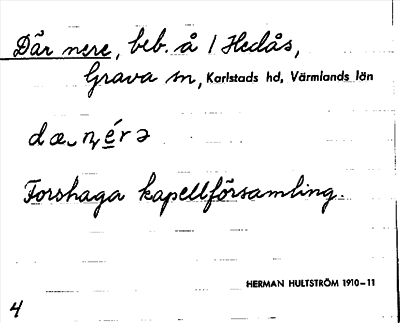 Där nere, beb. å 1 Hedås,
Grava sn, Karlstads hd, Värmlands län
dæ nérə
Forshaga kapellförsamling.
HERMAN HULTSTRÖM 1910–11
4